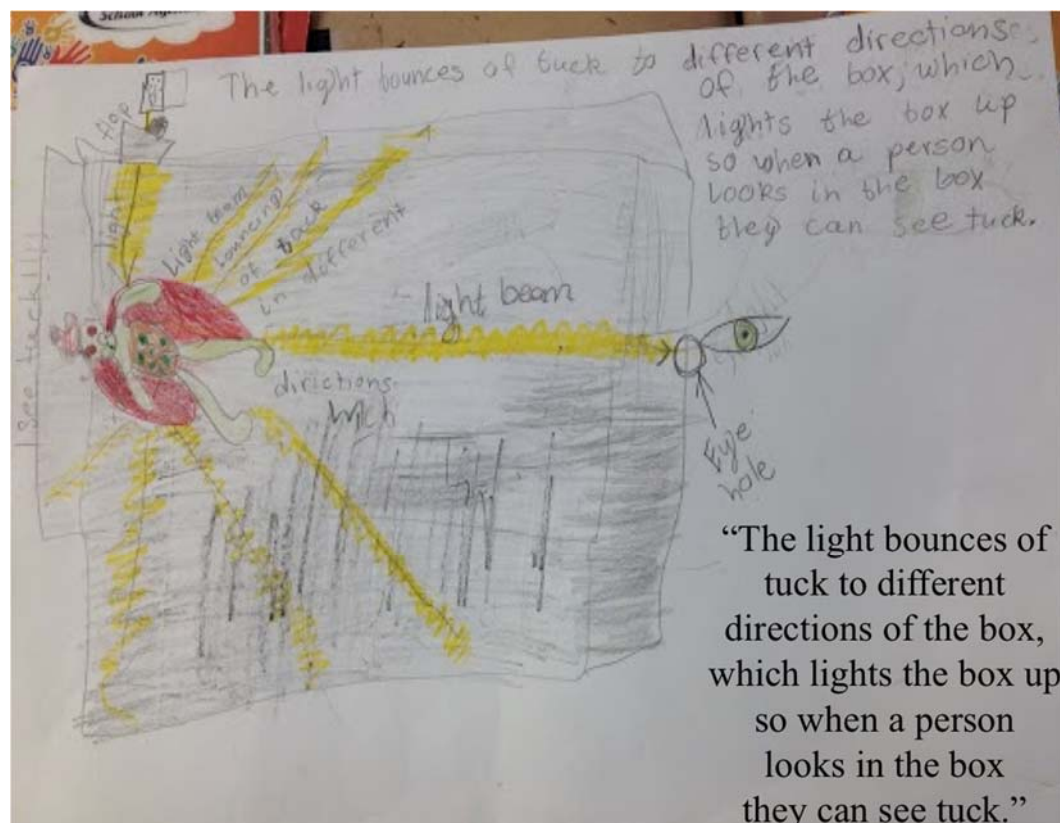 School
The light bounces of tuck to different directions
of the box, which
lights the box up
so when a person
looks in the box
they can see tuck.
flap
light
light beam
bouncing
of tuck
in different
light beam
dirictions
witch
I see tuck!!!!
Eye
hole
“The light bounces of
tuck to different
directions of the box,
which lights the box up
so when a person
looks in the box
they can see tuck.”